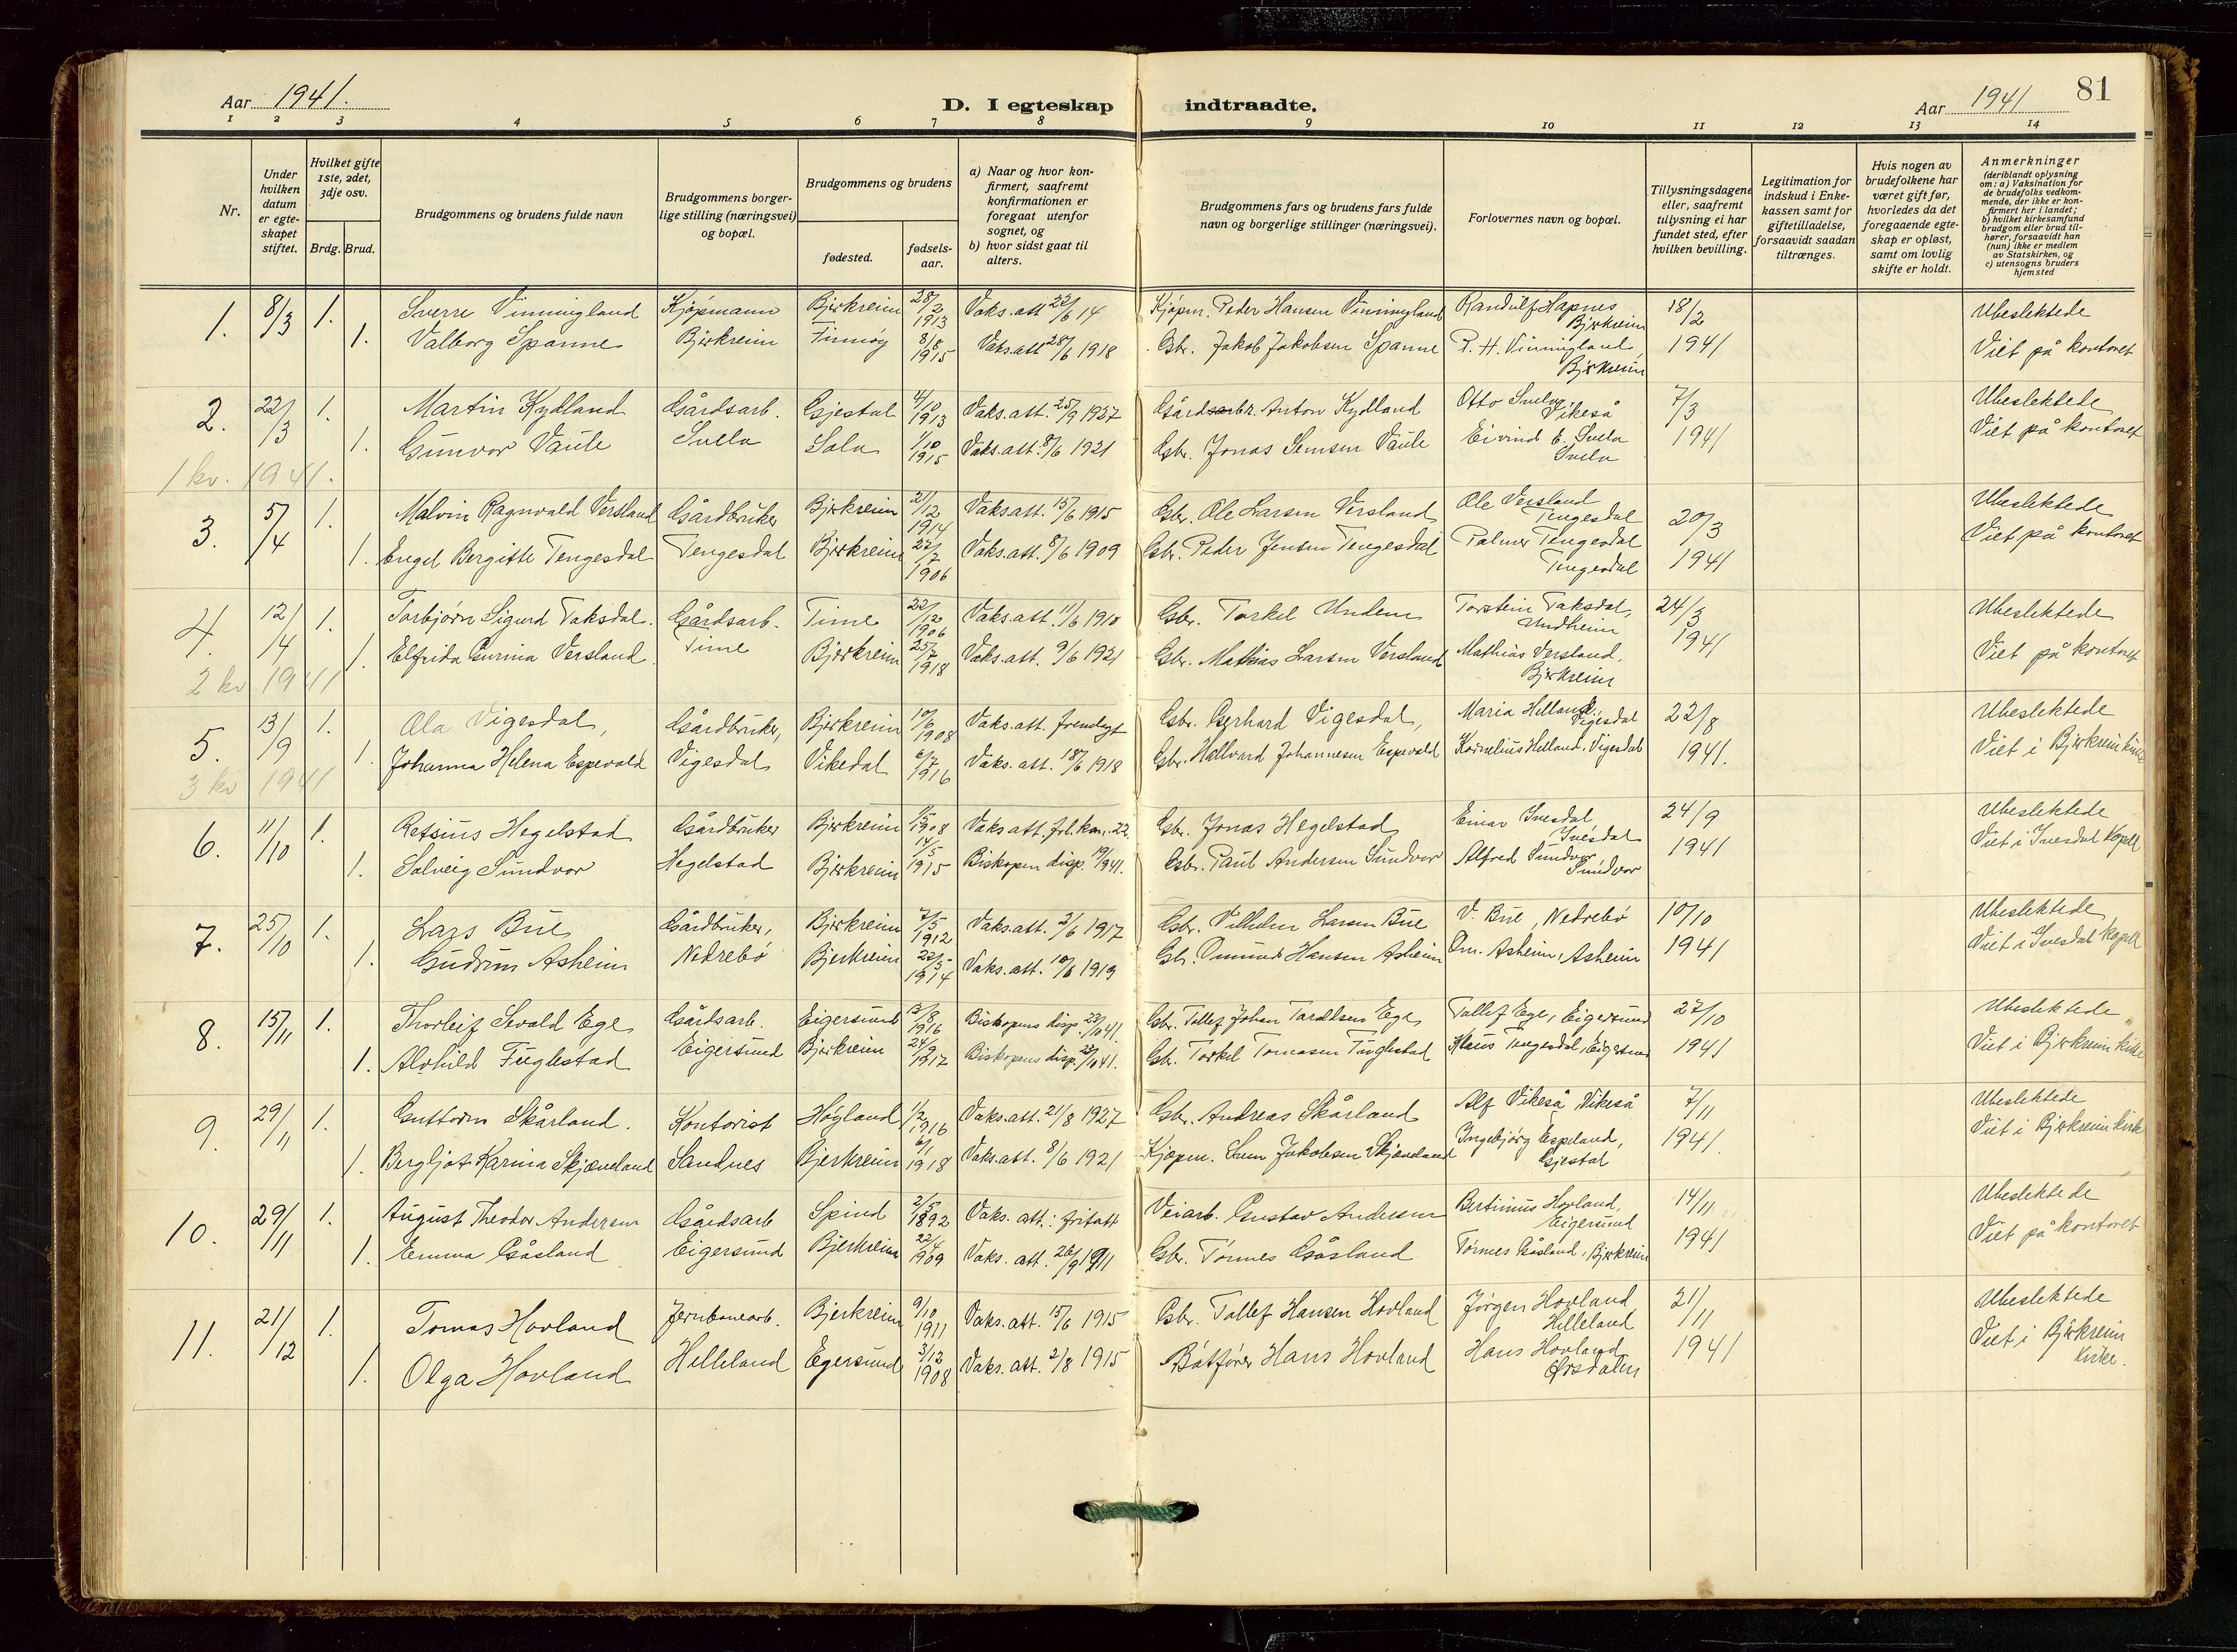 Aar 1941.
D. I egteskap indtraadte.
Aar 1941
81
1 2 3 4 5 6 7 8 9 10 11 12 13 14
Nr.
Under hvilken datum er egte-skapet stiftet.
Hvilket gifte 1ste, 2det, 3dje osv.
Brdg. Brud.
Brudgommens og brudens fulde navn
Brudgommens borger-lige stilling (næringsvei) og bopæl.
Brudgommens og brudens
fødested.
fødsels-aar.
a) Naar og hvor kon-firmert, saafremt konfirmationen er foregaat utenfor sognet, og
b) hvor sidst gaat til alters.
Brudgommens fars og brudens fars fulde navn og borgerlige stillinger (næringsvei).
Forlovernes navn og bopæl.
Tillysningsdagene eller, saafremt tillysning ei har fundet sted, efter hvilken bevilling.
Legitimation for indskud i Enke-kassen samt for giftetilladelse, forsaavidt saadan tiltrænges.
Hvis nogen av brudefolkene har været gift før, hvorledes da det foregaaende egte-skap er opløst, samt om lovlig skifte er holdt.
Anmerkninger
(deriblandt oplysning om: a) Vaksination for de brudefolks vedkom-mende, der ikke er kon-firmert her i landet;
b) hvilket kirkesamfund brudgom eller brud til-hører, forsaavidt han (hun) ikke er medlem av Statskirken, og
c) utensogns bruders hjemsted
1. 8/3 1. Sverre Vinningland Kjøpmann Bjerkreim 28/2 1913 Vaks.att 22/6 14 Kjøpm. Peder Hansen Vinningland Randulf Hapnes Bjerkreim 18/2 Ubeslektede
1. Valborg Spanne Bjerkreim Finnøy 8/8 1915 Vaks.att 28/6 1918 Gbr. Jakob Jakobsen Spanne P. H. Vinningland, Bjerkreim 1941 Viet på kontoret
2. 22/3 1. Martin Kydland Gårdsarb. Gjestal 4/10 1913 Vaks.att. 25/9 1927 Gårdbr. Anton Kydland Otto Svela Vikeså 7/3 Ubeslektede
1. Gunvor Vaule Svela Sola 1/10 1915 Vaks.att. 8/6 1921 Gbr. Jonas Vaule Eivind E. Svela Svela 1941 Viet på kontoret
1 kv. 1941.
3. 5/4 1. Malvin Ragnvald Versland Gårdbruker Bjerkreim 21/12 1914 Vaks.att. 15/6 1915 Gbr. Ole Larsen Versland Ole Versland Tengesdal 20/3 Ubeslektede
1. Engel Bergitte Tengesdal Tengesdal Bjerkreim 22/7 1906 Vaks.att. 8/6 1909 Gbr. Peder Jensen Tengesdal Palmer Tengesdal Tengesdal 1941 Viet på kontoret
4. 12/4 1. Torbjørn Sigurd Taksdal. Gårdsarb. Time 22/12 1906 Vaks.att. 11/6 1910 Gbr. Torkel Undem Torstein Taksdal, Undheim 24/3 Ubeslektede
1. Elfrida Gurina Versland Time Bjerkreim 25/7 1918 Vaks.att. 9/6 1921 Gbr. Mathias Larsen Versland Mathias Versland, Bjerkreim 1941 Viet på kontoret
2 kv 1941
5. 13/9 1. Ola Vigesdal, Gårdbruker, Bjerkreim 10/6 1908 Vaks.att. fremlagt Gbr. Gerhard Vigesdal, Maria Helland, Vigesdal 22/8 Ubeslektede
1. Johanna Helena Espevold Vigesdal Vikedal 6/7 1916 Vaks. att. 18/6 1918 Gbr. Hallvard Johannesen Espevold Kornelius Helland, Vigesdal 1941. Viet i Bjerkreim kirke
3 kv 1941
6. 11/10 1. Retsius Hegelstad Gårdbruker Bjerkreim 9/5 1908 Vaks att. Gbr. Jonas Hegelstad Einar Ivesdal, Ivesdal 24/9 Ubeslektede
1. Solveig Sundvor Hegelstad Bjerkreim 14/5 1915 Biskopen disp. 19/9 41. Gbr. Paul Andersen Sundvor Alfred Sundvor, Sundvor 1941 Viet i Ivesdal kapell
7. 25/10 1. Lars Bue Gårdbruker, Bjerkreim 7/5 1912 Vaks.att. 2/6 1917 Gbr. Vilhelm Larsen Bue V. Bue, Nedrebø 10/10 Ubeslektede
1. Gudrun Asheim Nedrebø Bjerkreim 22/5 1914 Vaks.att. 10/6 1919 Gbr. Omund Hansen Asheim Om. Asheim, Asheim 1941 Viet i Ivesdal kapell
8. 15/11 1. Thorleif Sevald Ege Gårdsarb. Eigersund 12/8 1916 Biskopens disp. 23/10 41. Gbr. Tollef Johan Taraldsen Ege Tollef Ege, Eigersund 27/10 Ubeslektede
1. Alvhild Fuglestad Eigersund Bjerkreim 24/9 1917 Biskopens disp. 23/10 41. Gbr. Torkel Tomasen Fuglestad Klaus Tengesdal, Eigersund 1941 Viet i Bjerkreim kirke
9. 29/11 1. Guttorm Skårland. Kontorist Høyland 1/2 1916 Vaks.att. 21/8 1927 Gbr. Andreas Skårland Alf Vikeså, Vikeså 7/11 Ubeslektede
1. Bergljot Karina Skjæveland Sandnes Bjerkreim 6/1 1918 Vaks.att. 8/6 1921 Kjøpm. Sven Jakobsen Skjæveland Ingebjørg Espeland, Gjestal 1941. Viet i Bjerkreim kirke
10. 29/11 1. August Theodor Andersen Gårdsarb Spind 2/5 1892 Vaks. att.: fritatt Veiarb. Gustav Andersen Bertinius Hovland, Eigersund 14/11 Ubeslektede
1. Emma Gåsland Eigersund Bjerkreim 22/4 1909 Vaks. att. 26/9 1911 Gbr. Tønnes Gåsland Tønnes Gåsland, Bjerkreim 1941 Viet på kontoret
11. 21/12 1. Tomas Hovland Jernbanearb. Bjerkreim 9/10 1911 Vaks.att. 15/6 1915 Gbr. Tollef Hansen Hovland Jørgen Hovland Helleland 21/11 Ubeslektede
1. Olga Hovland Helleland Egersund 3/12 1908 Vaks. att. 2/8 1915 Båtfører Hans Hovland Hans Hovland Ørsdalen 1941 Viet i Bjerkreim kirke.